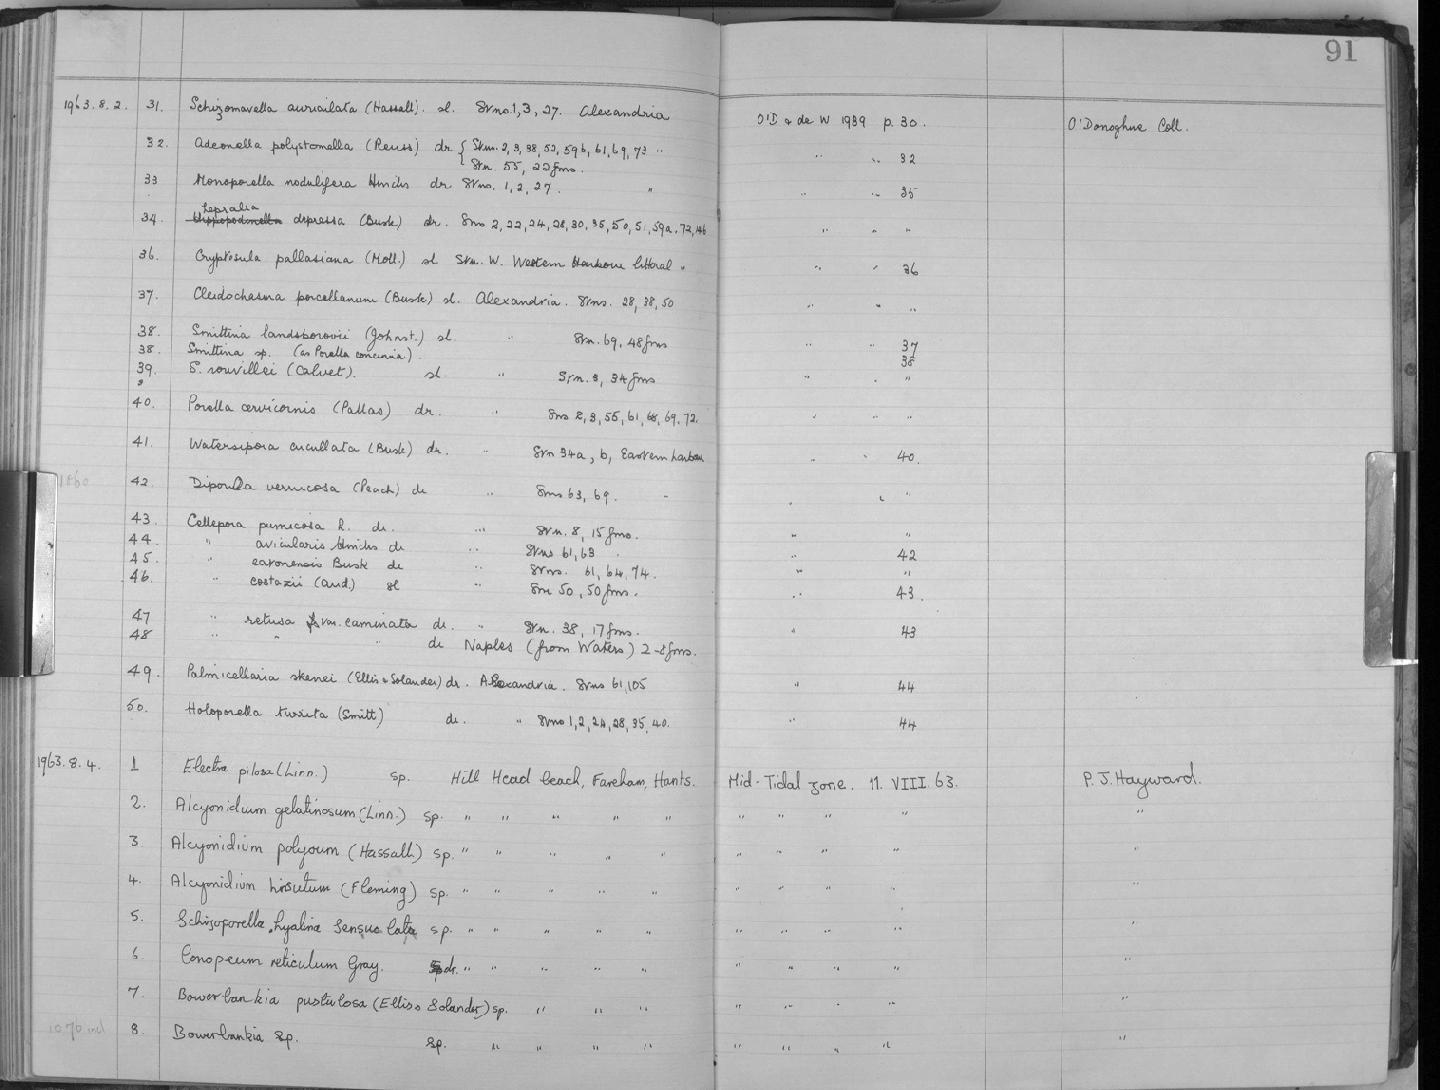 91
1963.8.2. 31. Schizomavella auriculata (Hassall). sl. Stns. 1, 3, 27. Alexandria O'D & de W 1939 p. 30. O'Donoghue Coll.
32. Adeonella polystomella (Reuss) dr. { Stns. 2, 3, 38, 52, 59b, 61, 69, 73 " " " 32
Stn. 55, 22 fms.
33 Monoporella nodulifera Hincks dr Stns. 1, 2, 27. " " " 35
Lepralia
34. depressa (Busk) dr. Stns 2, 22, 24, 28, 30, 35, 50, 51, 59a, 72, " " "
36. Cryptosula pallasiana (Moll.) sl Stn. W. Western Harbour littoral " " " 36
37. Cleidochasma porcellanum (Busk) sl. Alexandria. Stns. 28, 38, 50 " " "
38. Smittina landsborovii (Johnst.) sl. " Stn. 69, 48 fms " " 37
38. Smittina sp. (as Porella concinna). 38
39. S. rouvillei (Calvet). sl " Stn. 3, 34 fms " " "
40. Porella cervicornis (Pallas) dr. " Stns 2, 3, 55, 61, 68, 69, 72. " " "
41. Watersipora cucullata (Busk) dr. " Stn 34a, b, Eastern harbour " " 40.
42. verrucosa (Peach) dr " Stns 63, 69. " " "
43. Cellepora pumicosa L. dr. " Stn. 8, 15 fms. " "
44. " avicularis Hincks dr " Stns 61, 63 " 42
45. " eatonensis Busk dr " Stns. 61, 64, 74. " "
46. " costazii (Aud.) sl " Stn 50, 50 fms. " 43.
47 " retusa var. caminata dr. " Stn. 38, 17 fms. " 43
48 " " " dr Naples (from Waters) fms.
49. Palmicellaria skenei (Ellis & Solander) dr. Alexandria. Stns 61, 105 " 44
50. Holoporella (Smitt) dr. " Stns 1, 2, 24, 28, 35, 40. " 44
1963.8.4. 1 Electra pilosa (Linn.) sp. Hill Head beach, Fareham, Hants. Mid-Tidal zone. 11. VIII. 63. P. J. Hayward.
2. Alcyonidium gelatinosum (Linn.) sp. " " " " " " " " " "
3 Alcyonidium polyoum (Hassall) sp. " " " " " " " " " "
4. Alcyonidium hirsutum (Fleming) sp. " " " " " " " " " "
5. Schizoporella hyalina sensu lata sp. " " " " " " " " " "
6 Conopeum reticulum Gray. dr. " " " " " " " " " "
7. Bowerbankia pustulosa (Ellis & Solander) sp. " " " " " " " "
8. Bowerbankia sp. sp. " " " " " " " " "